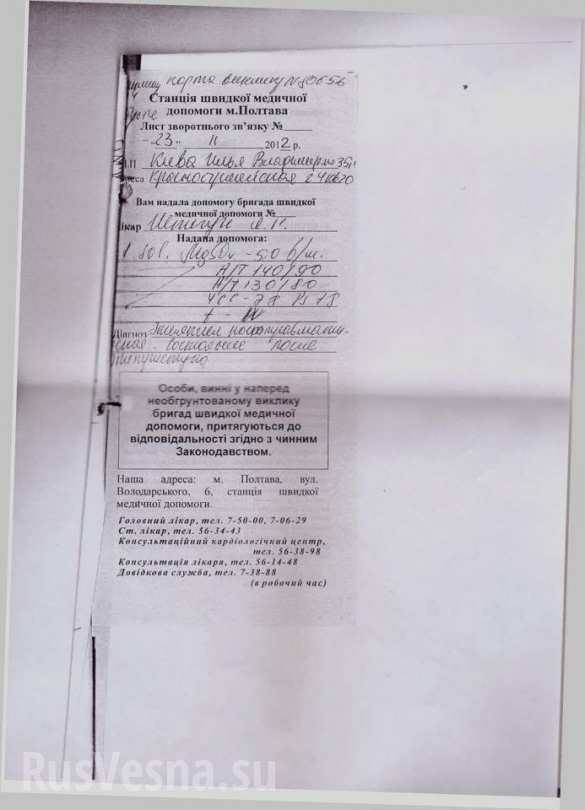 карта виклику №80656
Станція швидкої медичної
допомоги м.Полтава
Лист зворотнього зв'язку №
23 11 2012 р.
Кива Илья Владимирович 35л
2 4 кв 20
Вам надала допомогу бригада швидкої
медичної допомоги №
Лікар
Надана допомога:
MgSO4 - 5.0 в/м.
А/Т 140/90
А/Т 130/80
ЧСС - 78 Ps 78
t - N
Діагноз
состояние после
Особи, винні у наперед
необгрунтованому виклику
бригад швидкої медичної
допомоги, притягуються до
відповідальності згідно з чинним
Законодавством.
Наша адреса: м. Полтава, вул.
Володарського, 6, станція швидкої
медичної допомоги.
Головний лікар, тел. 7-50-00, 7-06-29
Ст. лікар, тел. 56-34-43
Консультаційний кардіологічний центр,
тел. 56-38-98
Консультація лікаря, тел. 56-14-48
Довідкова служба, тел. 7-38-88
(в робочий час)
RusVesna.su